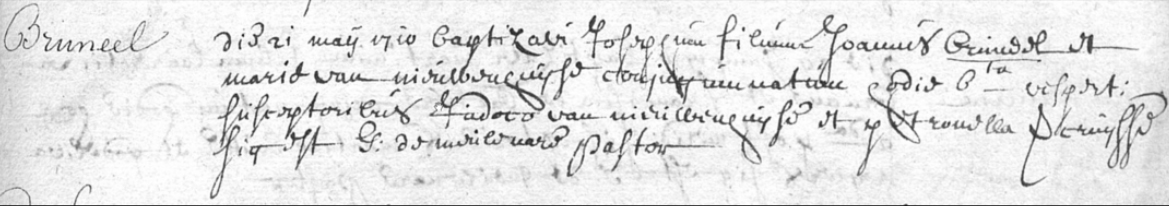 Bruneel
die 21 maÿ 1710 baptizavi Josephum filium Joannis bruneel et
marie van nieuwenhuÿse conjugum natum hodie 6ta vesperti:
susceptoribus Judoco van nieuwenhuÿse et petronella
sig est G: de meulenare pastor